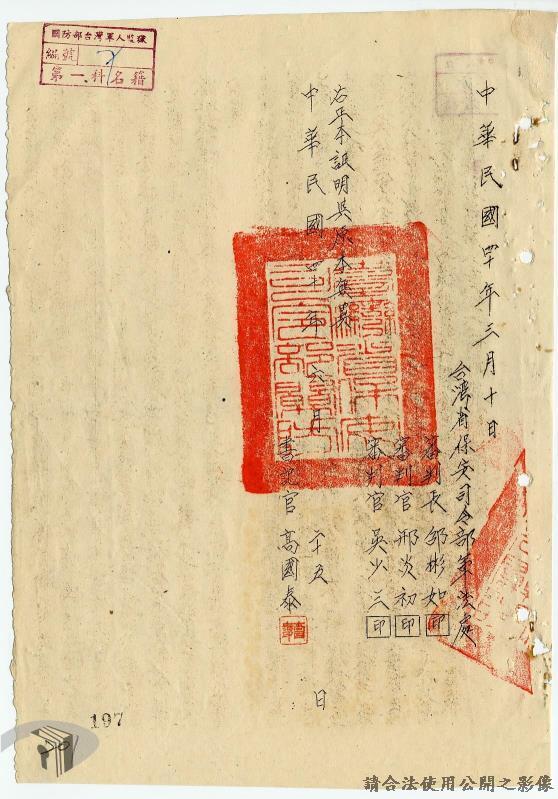 中華民國四十年三月十日
台灣省保安司令部軍法處
審判長 邹彬如 印
審判官 邢炎初 印
審判官 吳少三 印
右正本証明與原本無異
中華民國四十年六月廿五日
書記官 高國泰
國防部台灣軍人監獄
編號
第一科名籍
197
請合法使用公開之影像